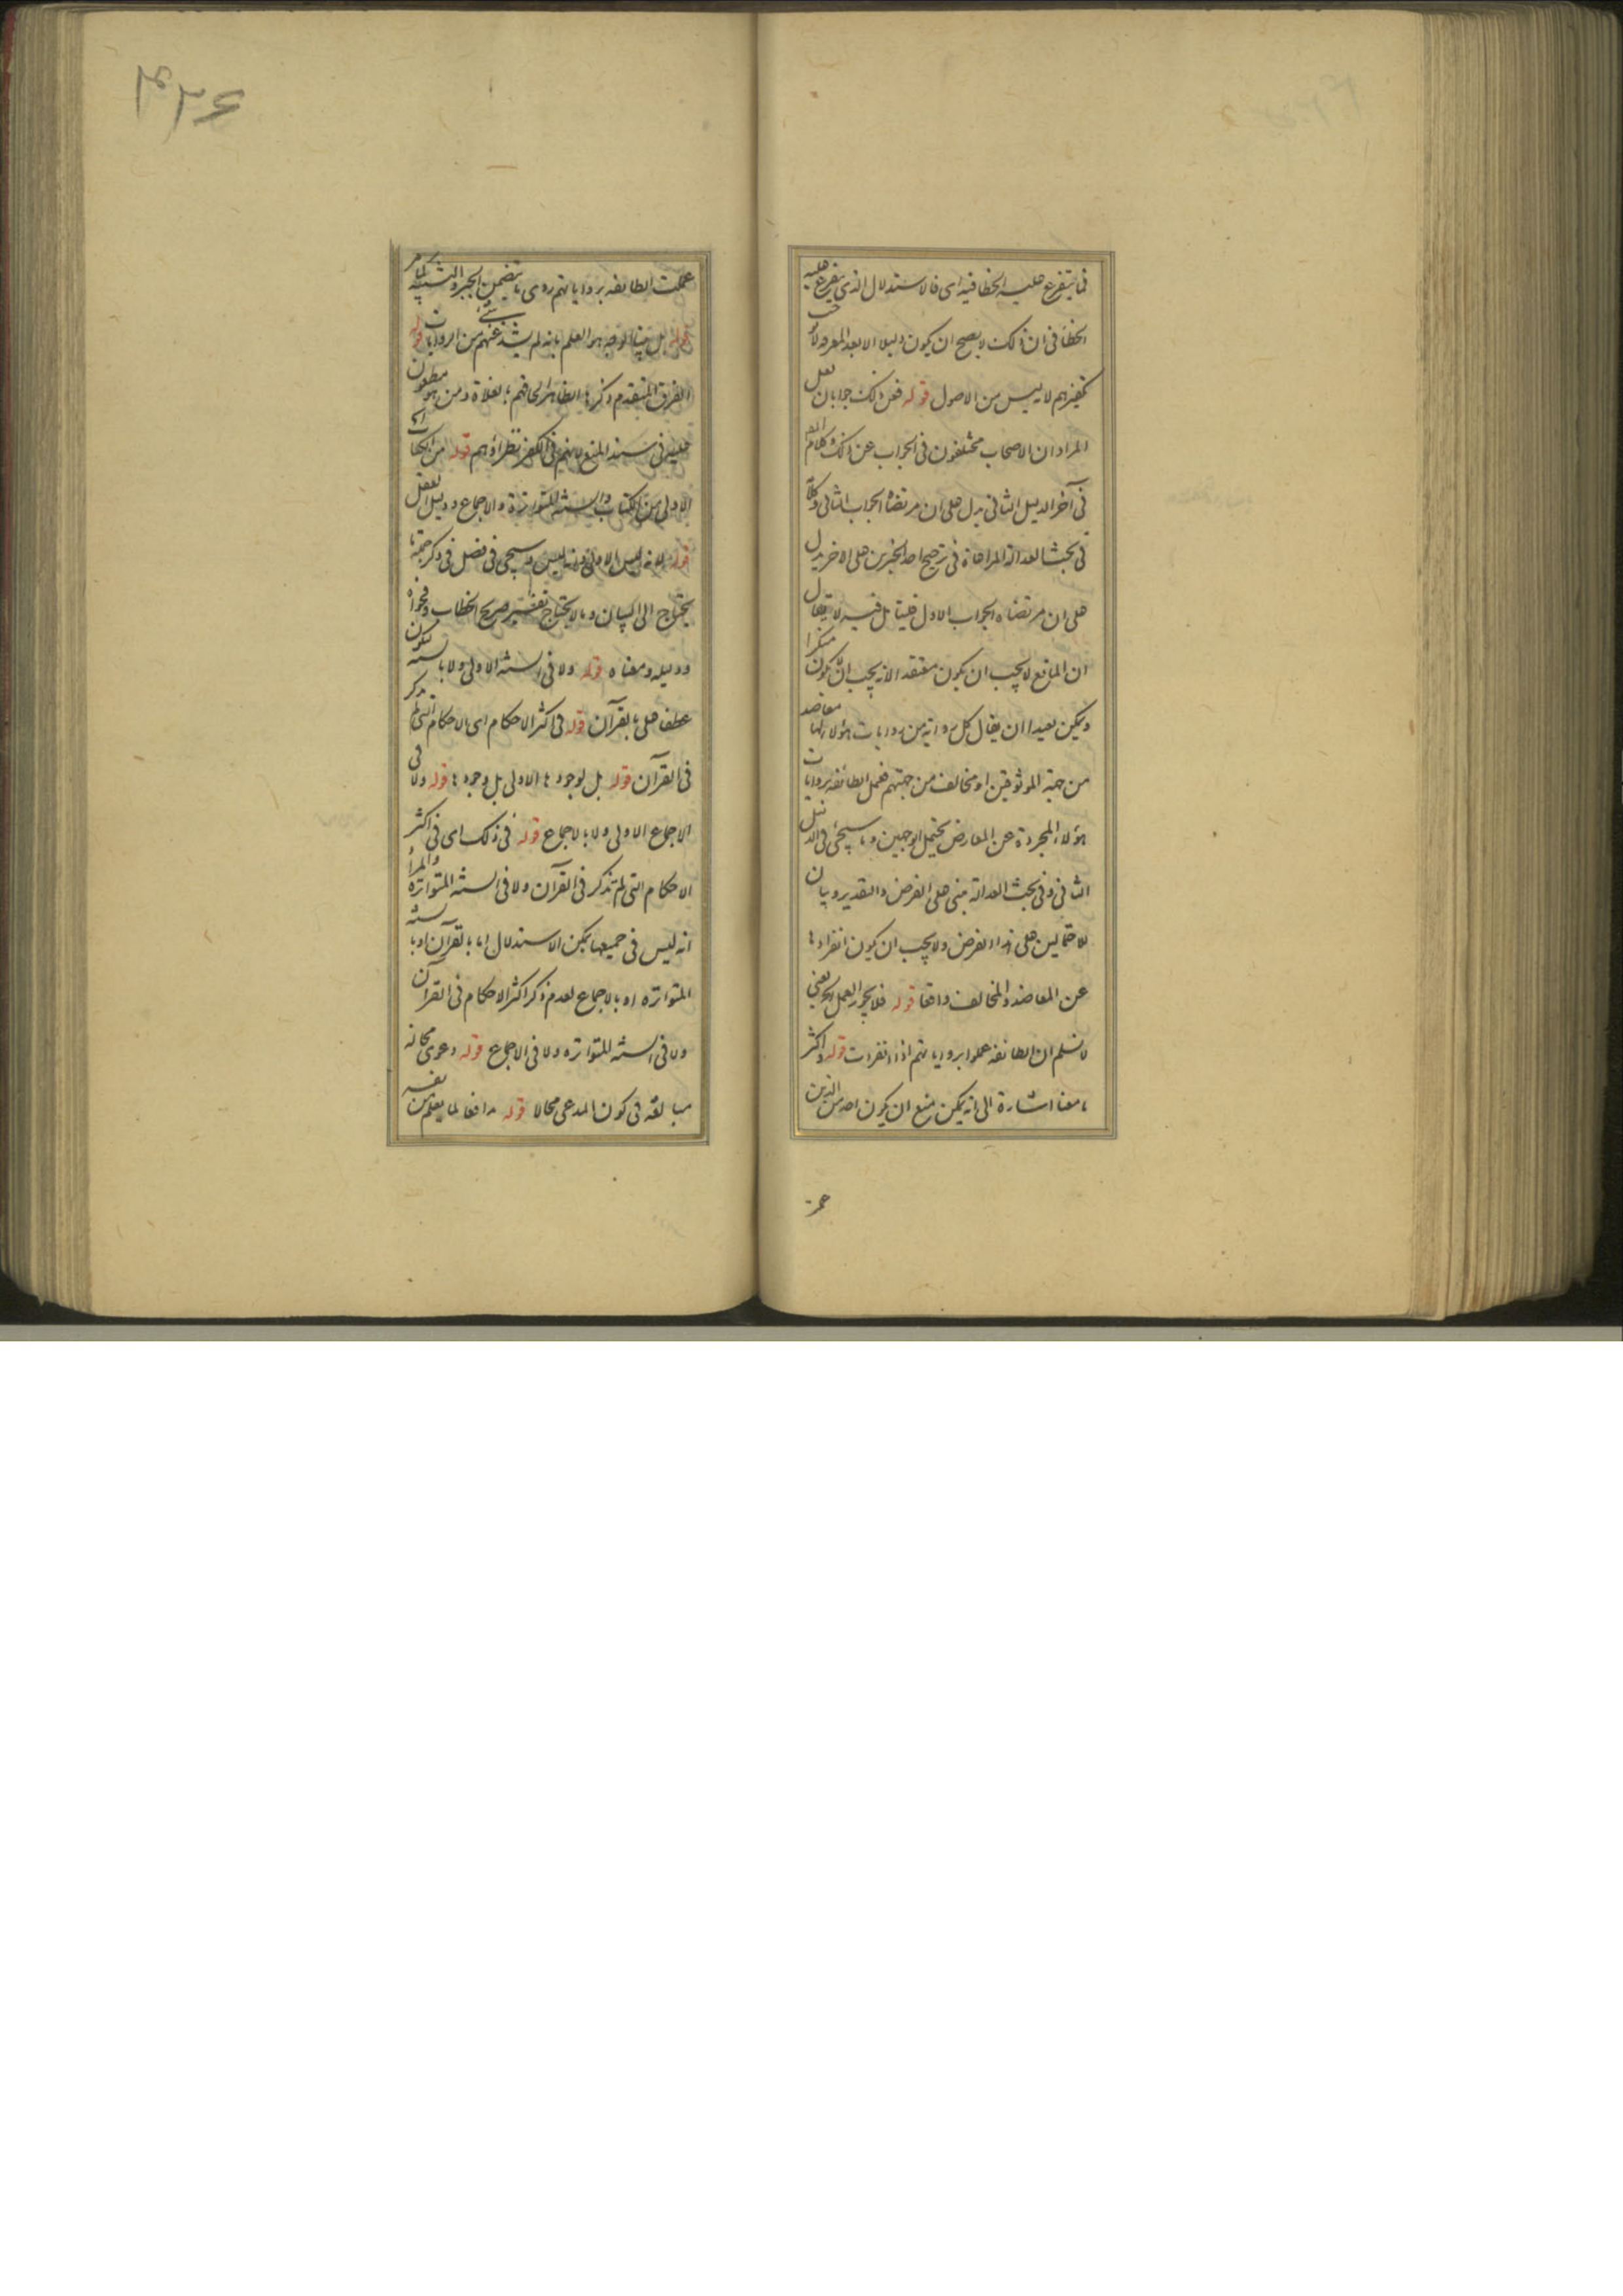 فما يتفرع عليه الخطا فيه اى فالاستدلال الذى يتفرع عليه
الخطا فى ان ذلك لا يصح ان يكون دليلا الا بعد المعرفه لا
تكفيرهم لا ليس من الاصول قوله فعن ذلك جوابان لعل
المراد ان الاصحاب مختلفون فى الجواب عن ذلك و كلام
فى آخر الدليل الثانى يدل على ان مرتضاه الجواب الثانى و كلا
فى بحث العدالة المراعاة فى ترجيح احد الخبرين على الاخر يدل
على ان مرتضاه الجواب الاول فليتامل فيه لا يقال
ان المانع لا يجب ان يكون معتقد الانه يجب ان لا يكون منكرا
و يمكن بعيدا ان يقال كل رواية من روايات هؤلاء لها معاضد
من جهة الموثوقين او مخالف من جهتهم فعمل الطائفه بروايات
هؤلاء المجردة عن المعارض يحتمل الوجهين و ما سيجئ فى الدليل
الثانى و فى بحث العدالة مبنى على الفرض و التقدير و بيان
لاحتمالين على هذا الفرض و لا يجب ان يكون انفرادها
عن المعاضد و المخالف واقعا قوله فلا يجوز العمل يعنى
لا نسلم ان الطائفه عملوا بروياتهم اذا انفردت قوله و اكثر
ما معنا اشارة الى انه يمكن منع ان يكون احد من الذين
عملت
۴۳۶
عملت الطائفه برواياتهم روى ما يتضمن الجبر و التشبيه
قوله بل بهذا الوجه هو العلم بانه لم يشذ عنهم شئ من الروايات قوله
الفرق المتقدم ذكرها الظاهر الحاقهم بالغلاة و من هو مطعون
عليه فى سند المنع لانهم فى الكفر نظراؤهم قوله من الكتاب
الاولى من الكتاب و السنة المتواترة و الاجماع و دليل العقل
قوله لانه ليس الاولى فانه ليس و سيجئ فى فصل فى ذكر جملة ما
يحتاج الى البيان و ما لا يحتاج تفسير صريح الخطاب و فحواه
و دليله و معناه قوله و لا فى السنة الاولى و لا بالسنه ليكون
عطف على بالقرآن قوله فى اكثر الاحكام اى الاحكام التى لم يذكر
فى القرآن قوله بل لوجودها الاولى بل وجودها قوله و لا فى
الاجماع الاولى و لا بالاجماع قوله فى ذلك اى فى اكثر
الاحكام التى لم تذكر فى القرآن و لا فى السنه المتواتره و المراد
انه ليس فى جميعها يمكن الاستدلال اما بالقرآن او بالسنه
المتواتره او بالاجماع لعدم ذكر اكثر الاحكام فى القرآن
و لا فى السنه المتواتره و لا فى الاجماع قوله دعوى محاله
مبالغه فى كون المدعى محالا قوله مدافعا لما يعلم من نفسه